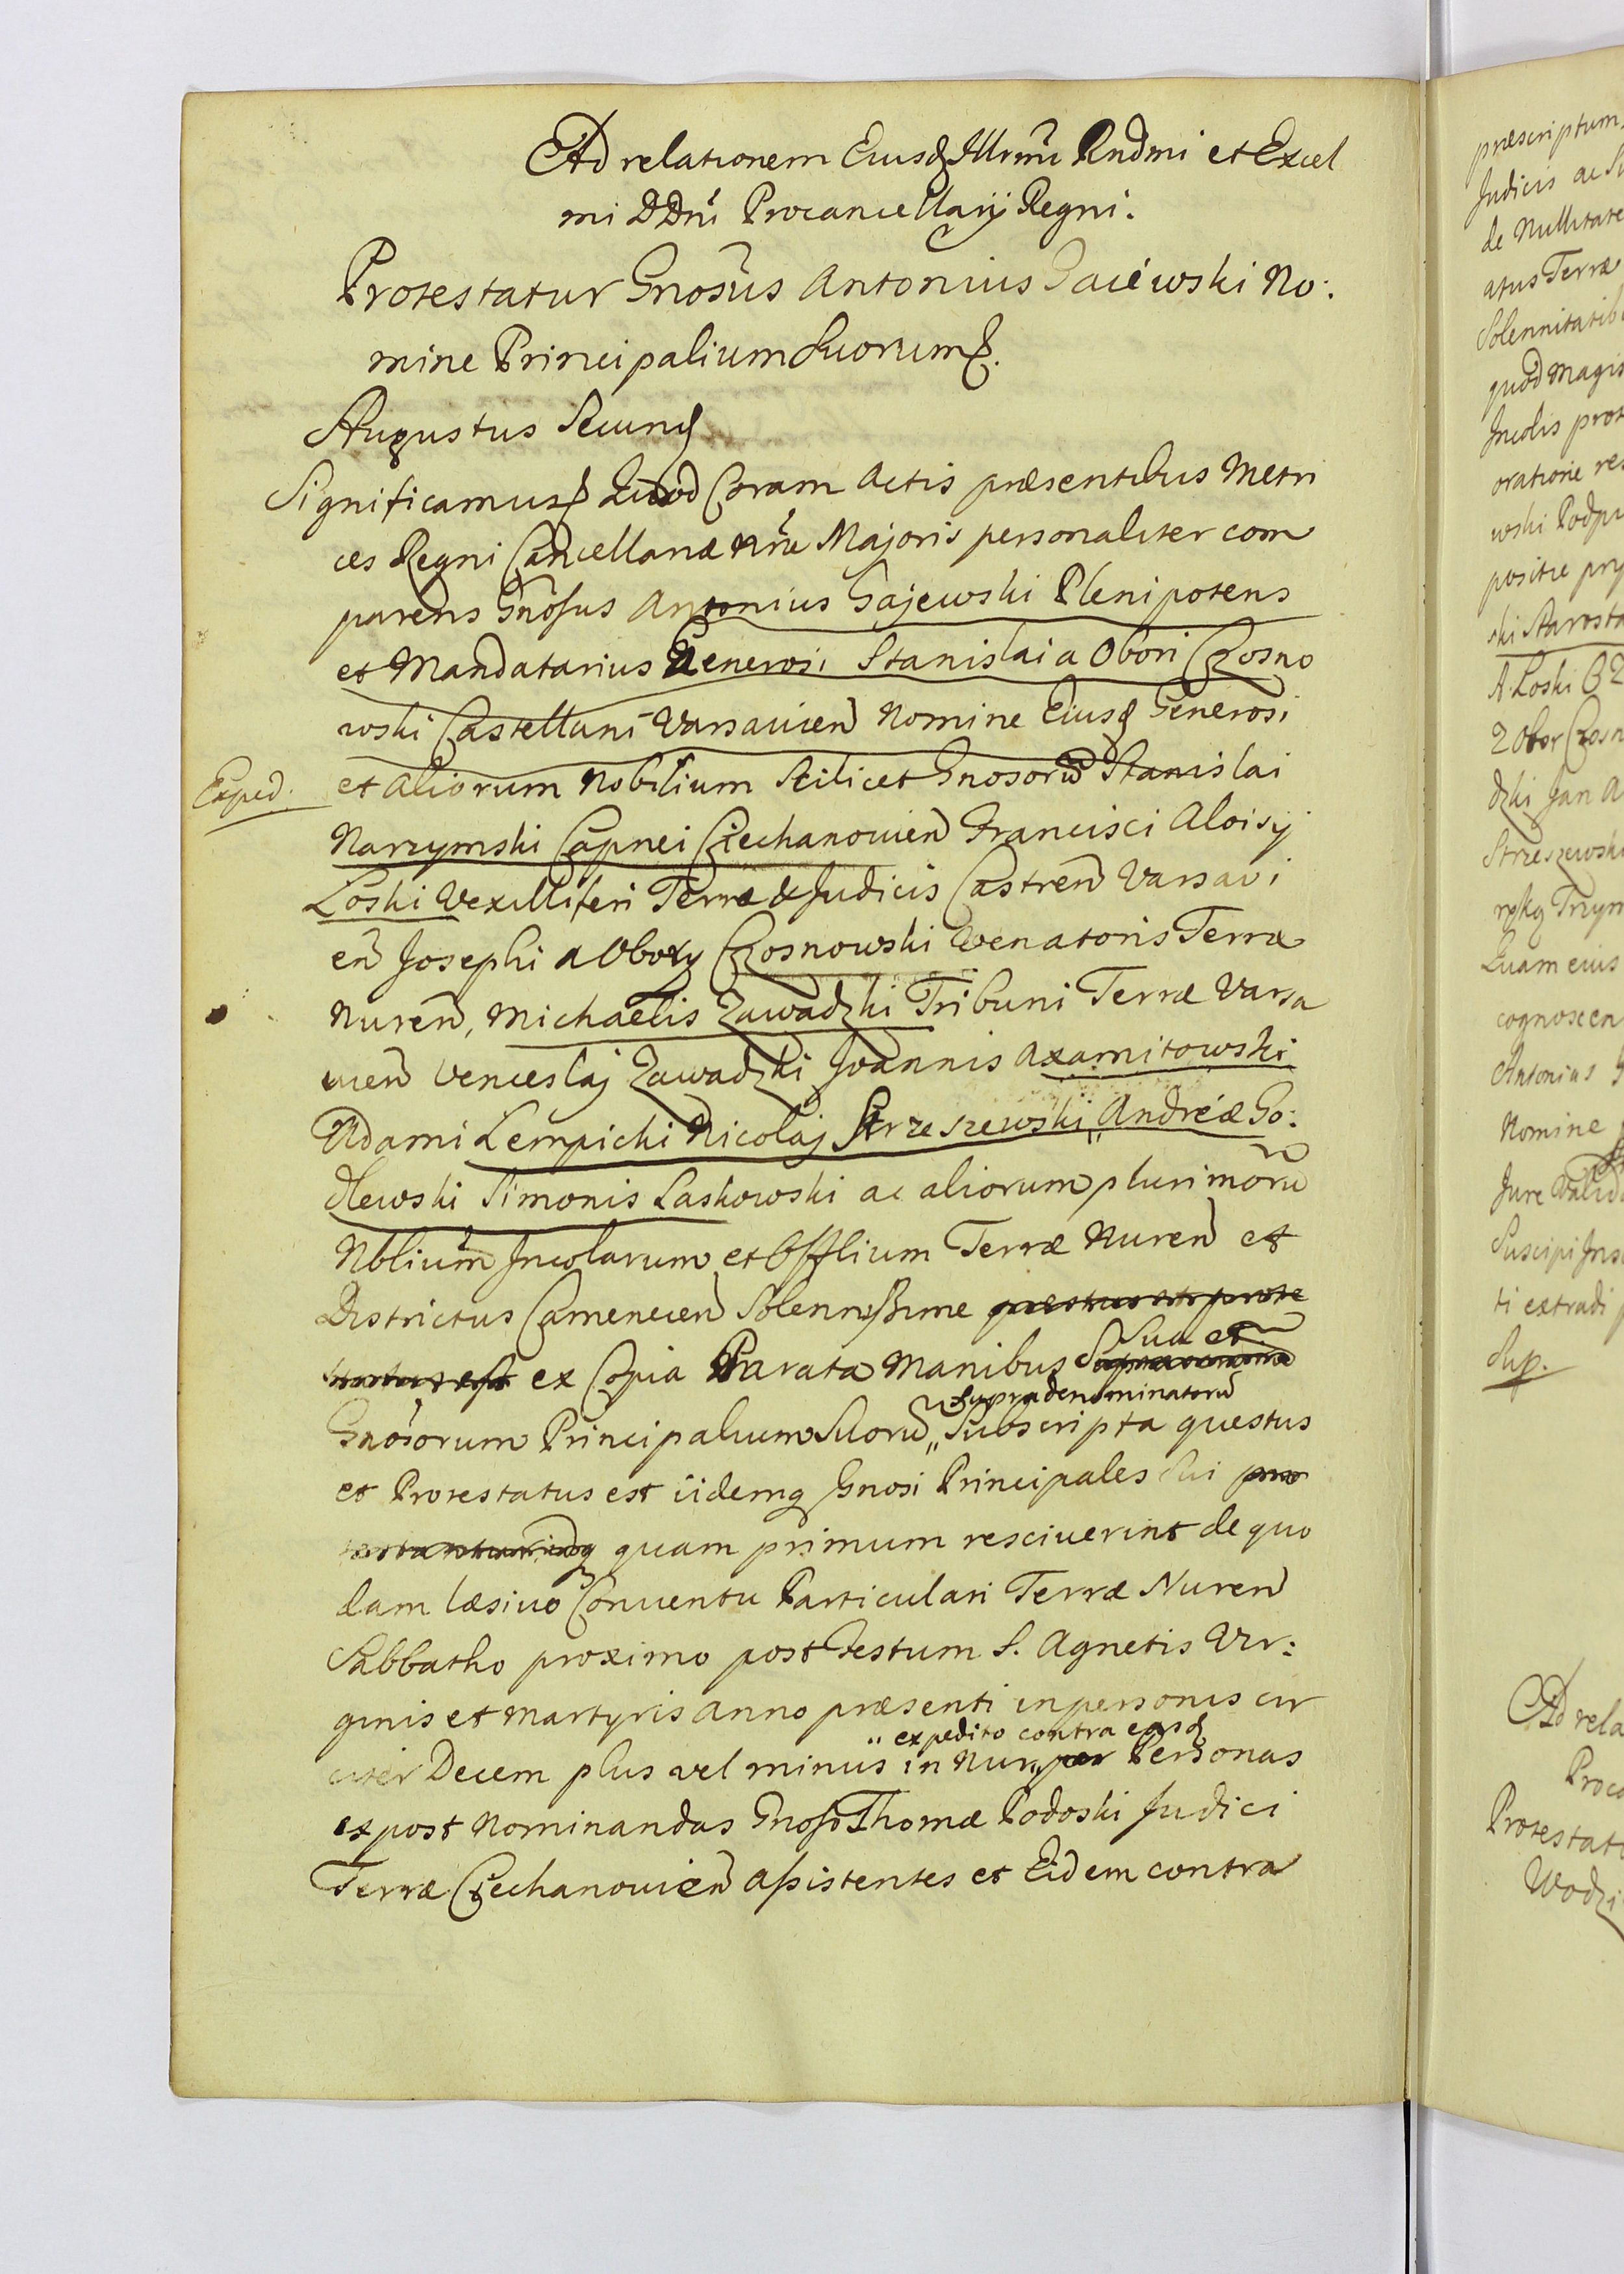 Ad relationem Eiusd Illrmi Rndmi et Excel
mi DDni Procancellarij Regni.
Protestatur Gnosus Antonius Gaiewski No:
mine Principalium Suorum
Augustus Secund
Significamus Quod Coram Actis præsentibus Metri
ces Regni Cancellariæ Nræ Majoris personaliter com
parens Gnosus Antonius Gajewski Plenipotens
et Mandatarius Generosi Stanislai a Obori Czosno
wski Castellani Varsavien Nomine Eiusd Generosi
Exped.
et aliorum Nobilium Scilicet Gnosorū Stanislai
Narzymski Capnei Ciechanovien Francisci Aloisij
Loski Vexilliferi Terræ & Judicis Castren Varsavi
en Josephi a Obory Czosnowski Venatoris Terræ
Nuren, Michaelis Zawadzki Tribuni Terræ Varsa
vien Venceslaj Zawadzki Joannis Axamitowski
Adami Lempicki Nicolaj Strzeszewski,, Andreæ Go:
dlewski Simonis Laskowski ac aliorum plurimorū
Nblium Incolarum et Offlium Terræ Nuren et
Districtus Camenecen Solennissime
ex Copia Parata Manibus Sua et
supradenominatorū
Gnosorum Principalium Suorū,, Subscripta questus
et Protestatus est iidemq Gnosi Principales Sui
quam primum resciverint de quo
dam læsivo Conventu Particulari Terræ Nuren
Sabbatho proximo post Festum S. Agnetis Vir:
ginis et Martyris Anno præsenti in personis cir
,, expedito contra easd
citer Decem plus vel minus in Nur,, per Personas
ex post Nominandas Gnoso Thomæ Podoski Judici
Terræ Ciechanovien assistentes et Eidem contra
præscriptum
de Nullitate
atus Terræ
quod magis
Jncolis
oratione
wski
ski Starosta
A. Loski
dzki Jan
Strzeszewski
Quam eius
cognoscen
Antonius
Nomine
Jure
Suscipi
ti extradi
Sup.
Ad rela
Proca
Protestat
Wodzi